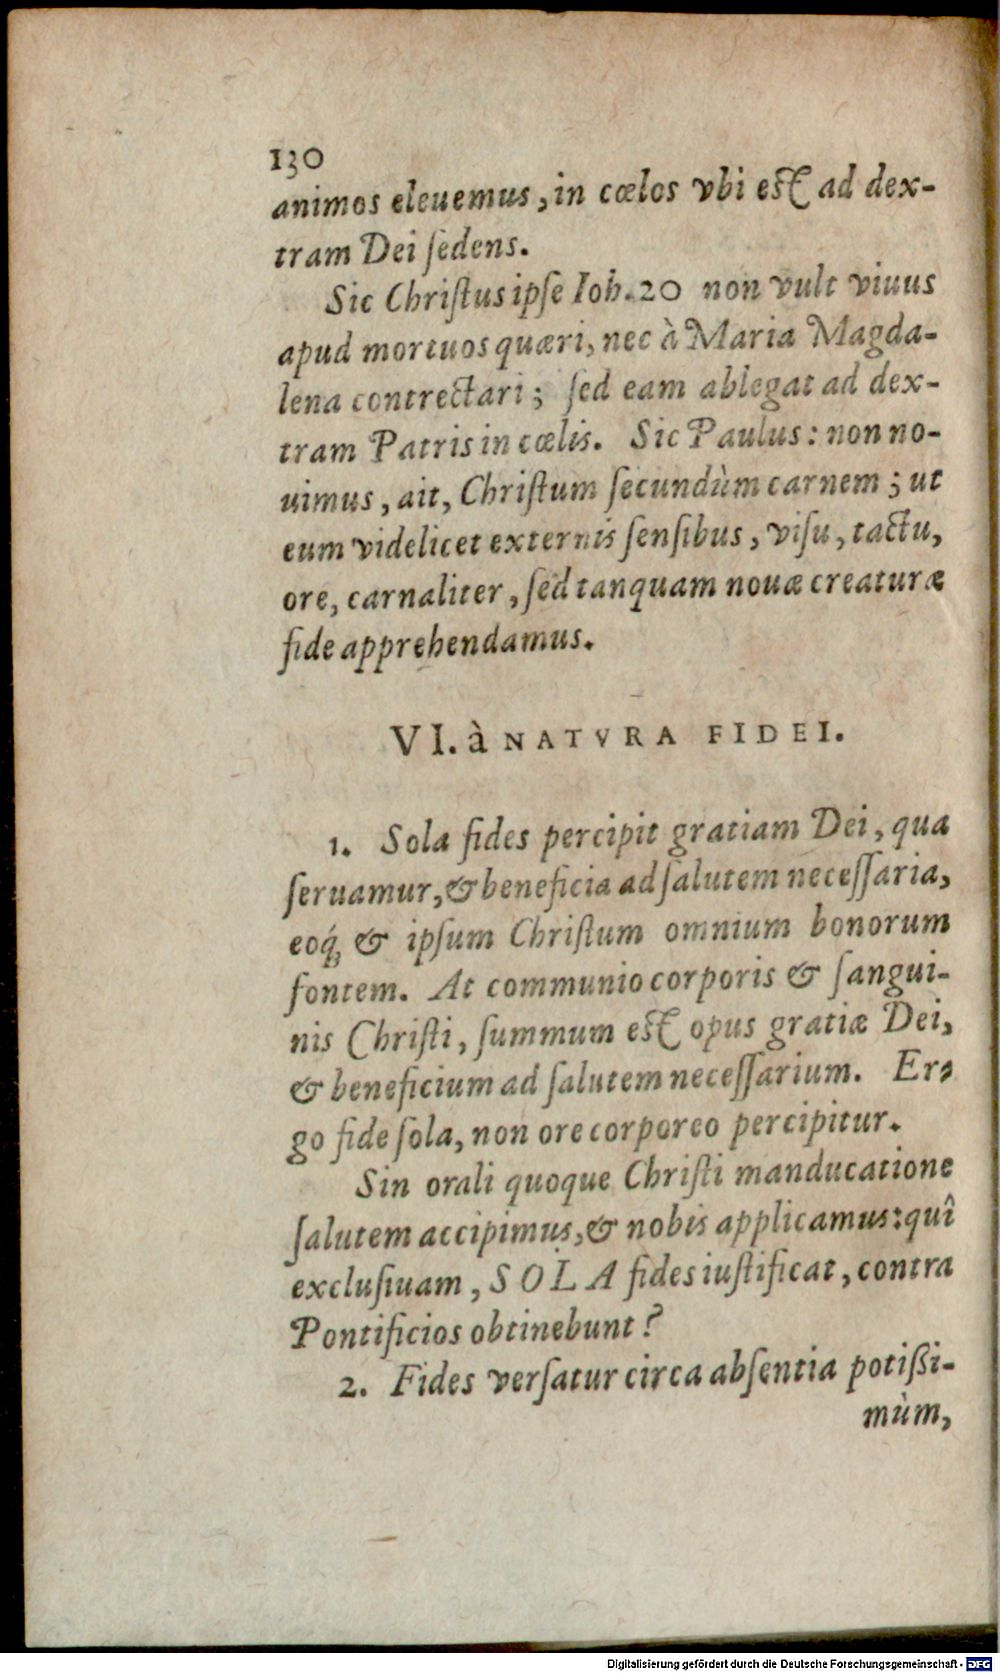 130
animos eleuemus, in cœlos vbi est ad dex-
tram Dei ſedens.
Sic Chriſtus ipſe Ioh. 20 non vult viuus
apud mortuos quæri, nec à Maria Magda-
lena contrectari; ſed eam ablegat ad dex-
tram Patris in cœlis. Sic Paulus: non no-
uimus, ait, Chriſtum ſecundùm carnem; ut
eum videlicet externis ſenſibus, viſu, tactu,
ore, carnaliter, ſed tanquam nouæ creaturæ
fide apprehendamus.
VI. à NATVRA FIDEI.
1. Sola fides percipit gratiam Dei, qua
ſeruamur, & beneficia ad ſalutem neceſſaria,
eoq́; & ipſum Chriſtum omnium bonorum
fontem. At communio corporis & ſangui-
nis Chriſti, ſummum est opus gratiæ Dei,
& beneficium ad ſalutem neceſſarium. Er-
go fide ſola, non ore corporeo percipitur.
Sin orali quoque Chriſti manducatione
ſalutem accipimus, & nobis applicamus: quî
excluſiuam, SOLA fides iuſtificat, contra
Pontificios obtinebunt?
2. Fides verſatur circa abſentia potißi-
mùm,
Digitalisierung gefördert durch die Deutsche Forschungsgemeinschaft - DFG